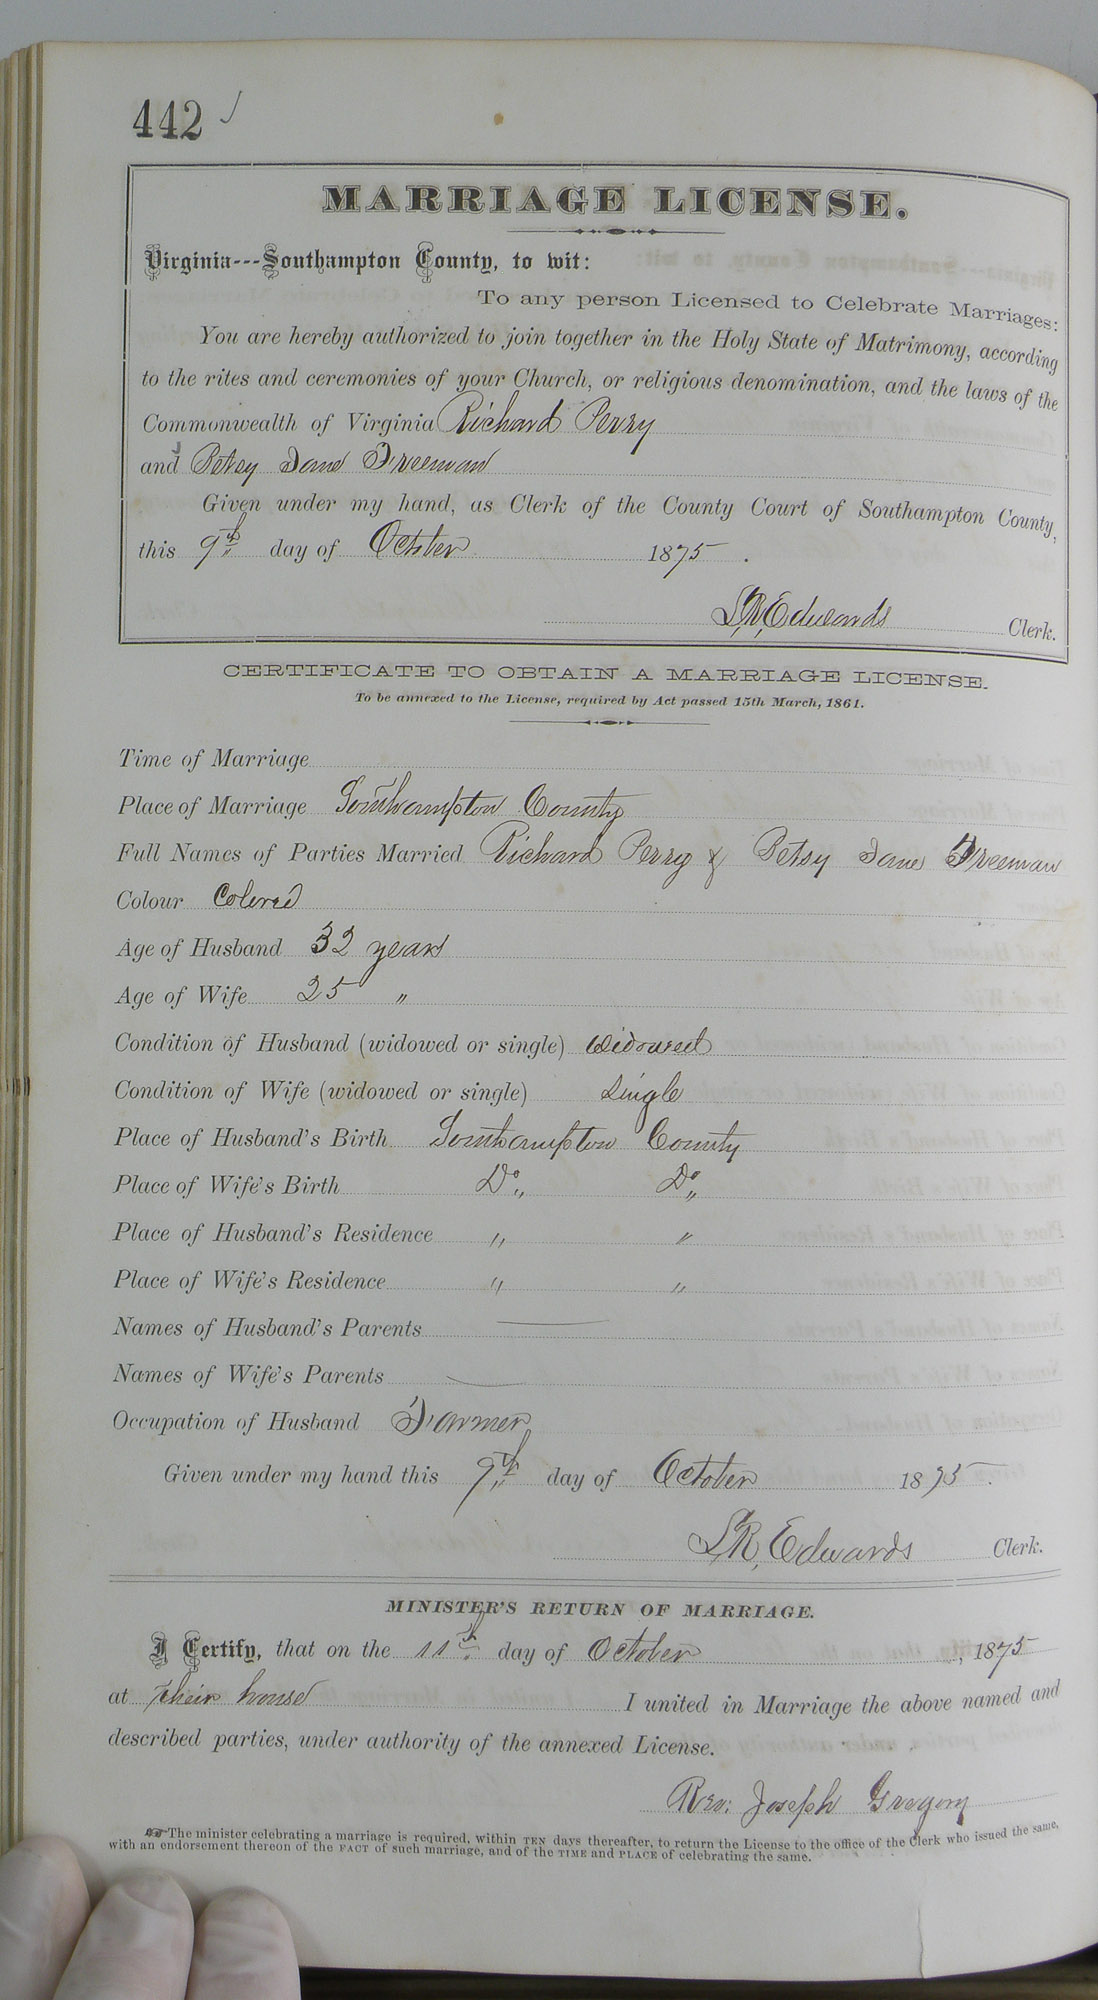 442
MARRIAGE LICENSE.
Virginia---Southampton County, to wit:
To any person Licensed to Celebrate Marriages:
You are hereby authorized to join together in the Holy State of Matrimony, according
to the rites and ceremonies of your Church, or religious denomination, and the laws of the
Commonwealth of Virginia Richard Perry
and Betsy Jane Freeman
Given under my hand, as Clerk of the County Court of Southampton County,
this 9th day of October 1875.
L,R, Edwards Clerk.
CERTIFICATE TO OBTAIN A MARRIAGE LICENSE.
To be annexed to the License, required by Act passed 15th March, 1861.
Time of Marriage
Place of Marriage Southampton County
Full Names of Parties Married Richard Perry & Betsy Jane Freeman
Colour Colored
Age of Husband 32 years
Age of Wife 25 "
Condition of Husband (widowed or single) Widowed
Condition of Wife (widowed or single) Single
Place of Husband's Birth Southampton County
Place of Wife's Birth Do,, Do,,
Place of Husband's Residence " "
Place of Wife's Residence " "
Names of Husband's Parents —
Names of Wife's Parents —
Occupation of Husband Farmer
Given under my hand this 9th day of October 1875.
L,R, Edwards Clerk.
MINISTER'S RETURN OF MARRIAGE.
I Certify, that on the 11th day of October, 1875
at their house I united in Marriage the above named and
described parties, under authority of the annexed License.
Rev: Joseph Gregory
☞ The minister celebrating a marriage is required, within TEN days thereafter, to return the License to the office of the Clerk who issued the same,
with an endorsement thereon of the FACT of such marriage, and of the TIME and PLACE of celebrating the same.